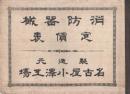 械器防消
表價定
元造製
場工澤小屋古名